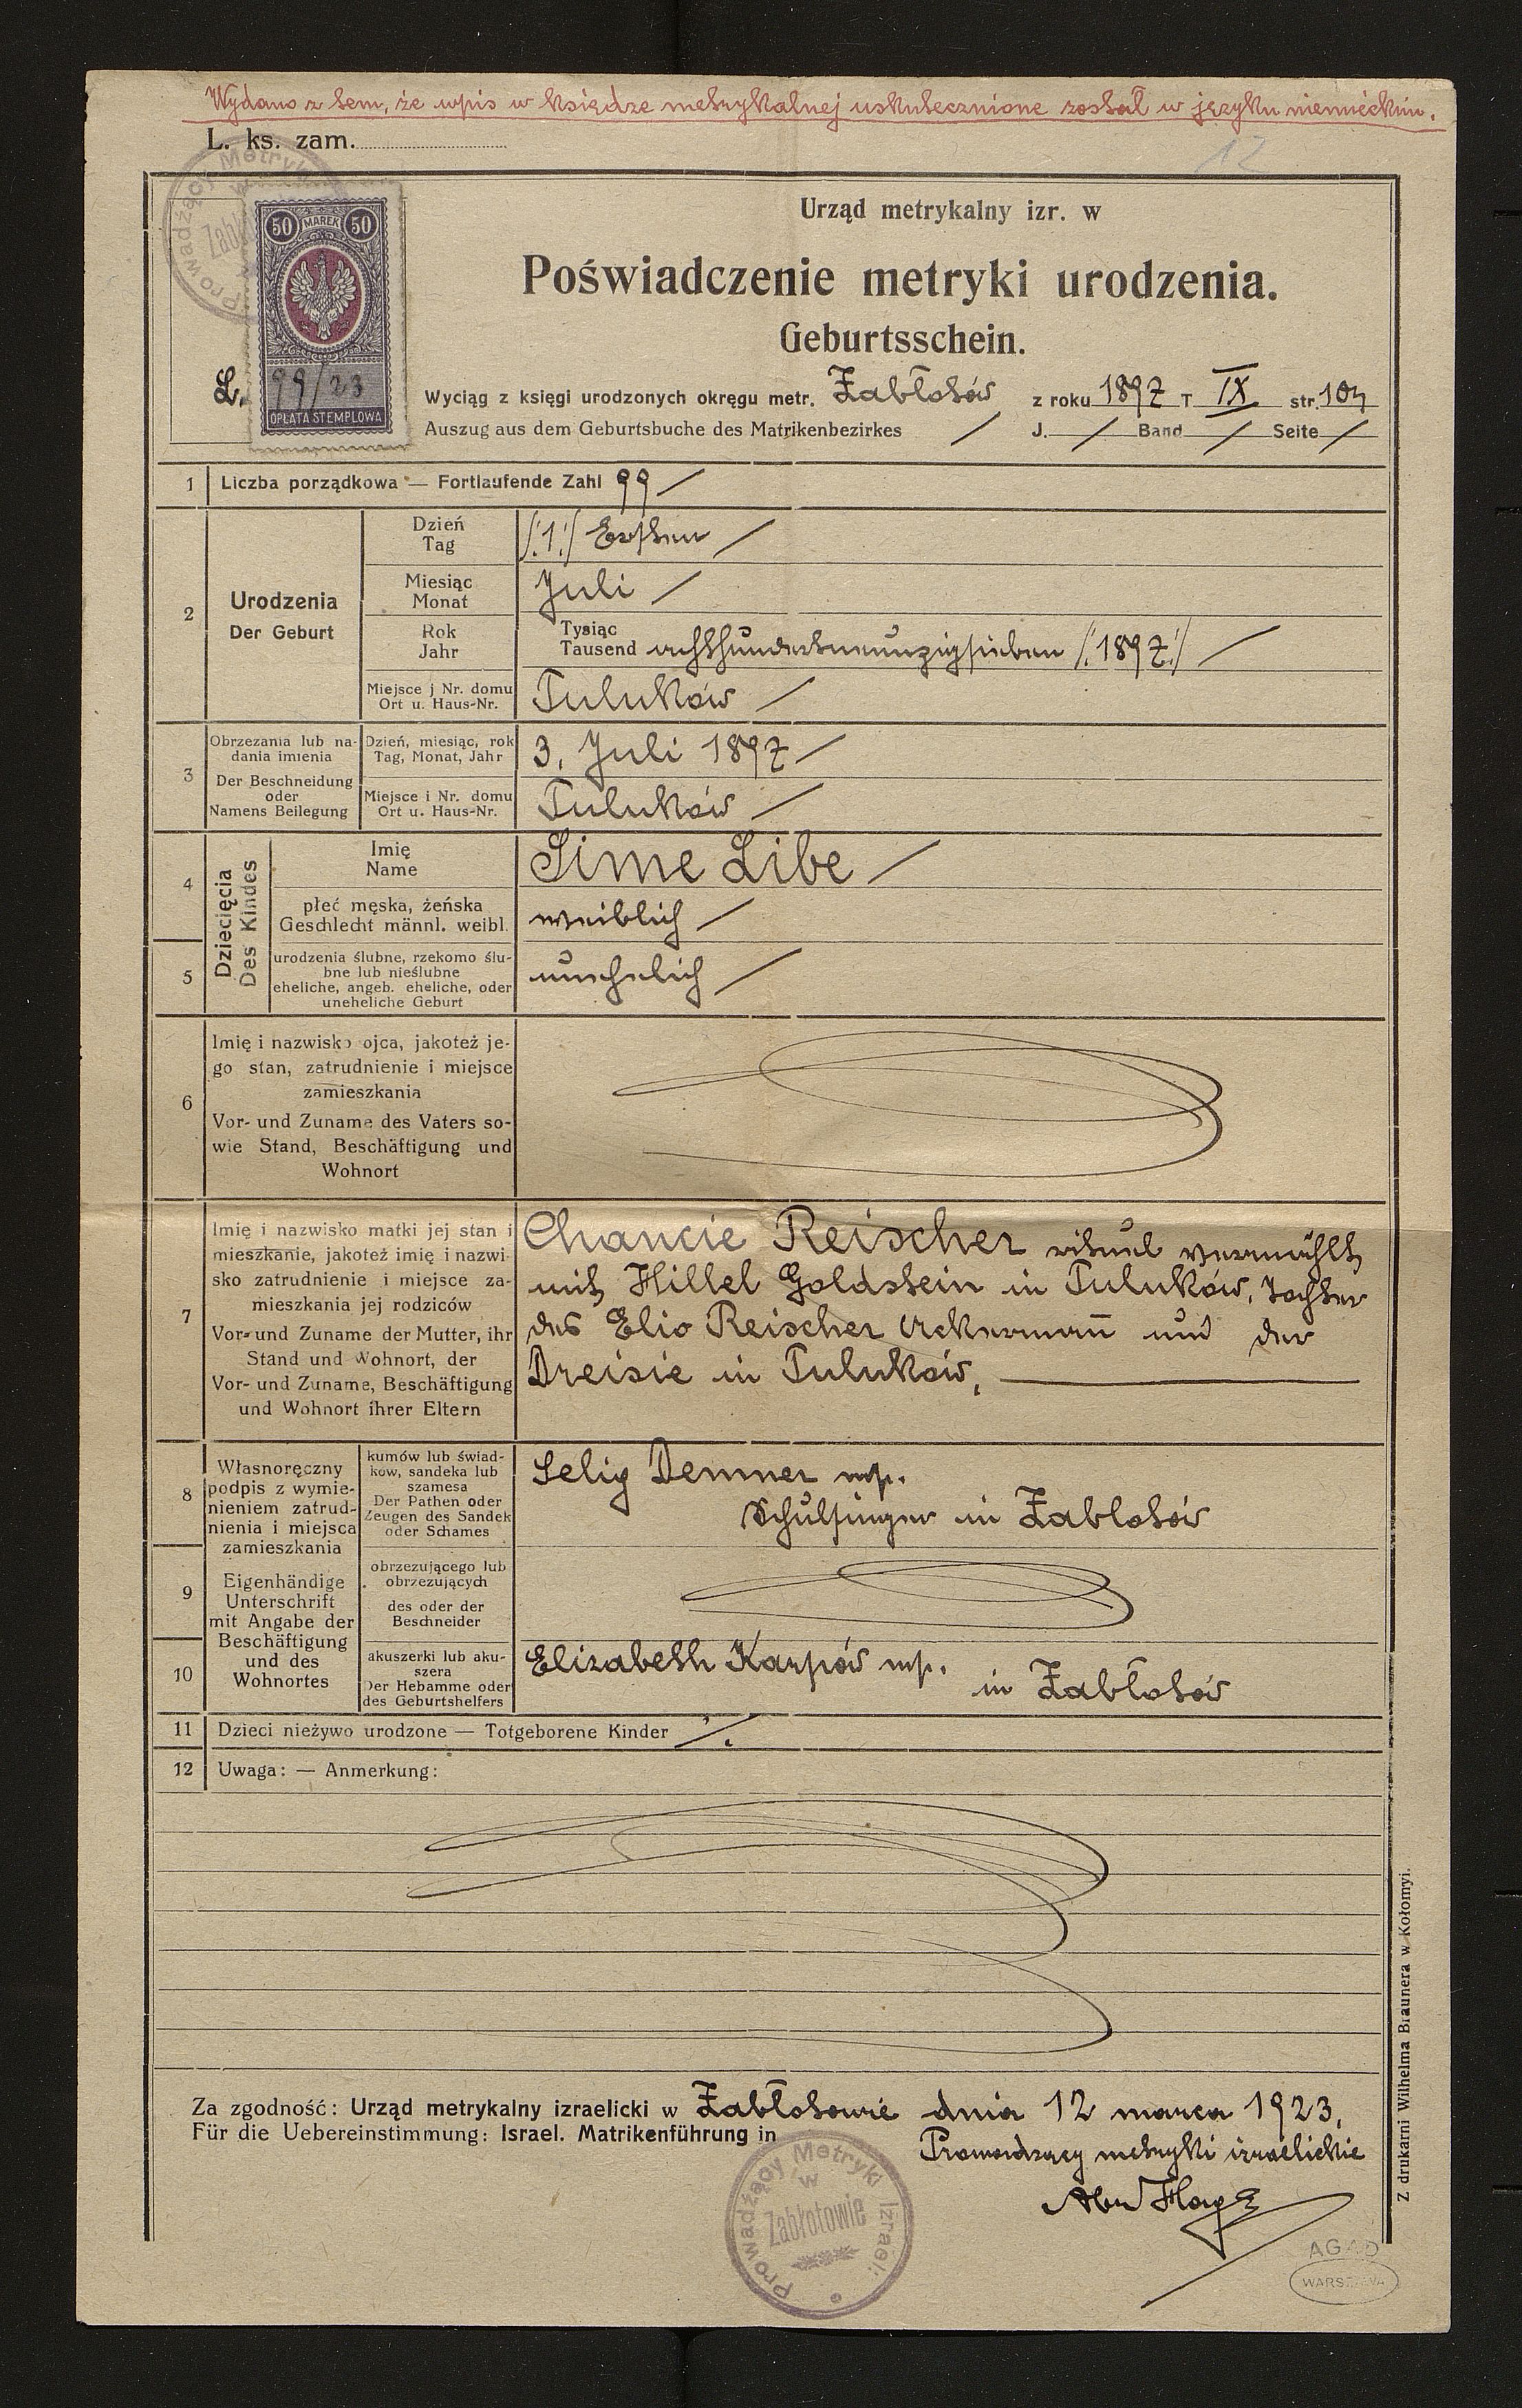 Wydano z tem, że wpis w księdze metrykalnej uskutecznione został w języku niemieckim.
L. ks. zam.
12
Urząd metrykalny izr. w
Poświadczenie metryki urodzenia.
Geburtsschein.
50 MAREK 50
L. 99/23
OPŁATA STEMPLOWA
Wyciąg z księgi urodzonych okręgu metr. Zabłotów z roku 1897 T IX str.
Auszug aus dem Geburtsbuche des Matrikenbezirkes / J. / Band / Seite /
1 Liczba porządkowa — Fortlaufende Zahl 99 /
2 Urodzenia
Der Geburt
Dzień
Tag
/:1:/ Ersten /
Miesiąc
Monat
Juli /
Rok
Jahr
Tysiąc
Tausend achthundertneunzigsieben /:1897:/ /
Miejsce j Nr. domu
Ort u. Haus-Nr.
Tuluków /
3 Obrzezania lub na-
dania imienia
Der Beschneidung
oder
Namens Beilegung
Dzień, miesiąc, rok
Tag, Monat, Jahr
3. Juli 1897 /
Miejsce i Nr. domu
Ort u. Haus-Nr.
Tuluków /
Dziecięcia
Des Kindes
4 Imię
Name
Sime Libe /
płeć męska, żeńska
Geschlecht männl. weibl.
weiblich /
5 urodzenia ślubne, rzekomo ślu-
bne lub nieślubne
eheliche, angeb. eheliche, oder
uneheliche Geburt
unehelich /
6 Imię i nazwisko ojca, jakoteż je-
go stan, zatrudnienie i miejsce
zamieszkania
Vor- und Zuname des Vaters so-
wie Stand, Beschäftigung und
Wohnort
7 Imię i nazwisko matki jej stan i
mieszkanie, jakoteż imię i nazwi-
sko zatrudnienie i miejsce za-
mieszkania jej rodziców
Vor- und Zuname der Mutter, ihr
Stand und Wohnort, der
Vor- und Zuname, Beschäftigung
und Wohnort ihrer Eltern
Chancie Reischer rituel vermählt
mit Hillel Goldstein in Tuluków, Tochter
des Elio Reischer Ackermann und der
Dreisie in Tuluków.
8 Własnoręczny
podpis z wymie-
nieniem zatrud-
nienia i miejsca
zamieszkania
kumów lub świad-
ków, sandeka lub
szamesa
Der Pathen oder
Zeugen des Sandek
oder Schames
Selig Demner mp.
Schulsinger in Zablotów
9 Eigenhändige
Unterschrift
mit Angabe der
Beschäftigung
und des
Wohnortes
obrzezującego lub
obrzezujących
des oder der
Beschneider
10 akuszerki lub aku-
szera
Der Hebamme oder
des Geburtshelfers
Elizabeth Karpów mp.
in Zabłotów
11 Dzieci nieżywo urodzone — Totgeborene Kinder /.
12 Uwaga: — Anmerkung:
Za zgodność: Urząd metrykalny izraelicki w Zabłotowie dnia 12 marca 1923.
Für die Uebereinstimmung: Israel. Matrikenführung in
Prowadzący metryki izraelickie
Prowadzący Metryki Izrael.
w
Zabłotowie
AGAD
WARSZAWA
Z drukarni Wilhelma Braunera w Kołomyi.